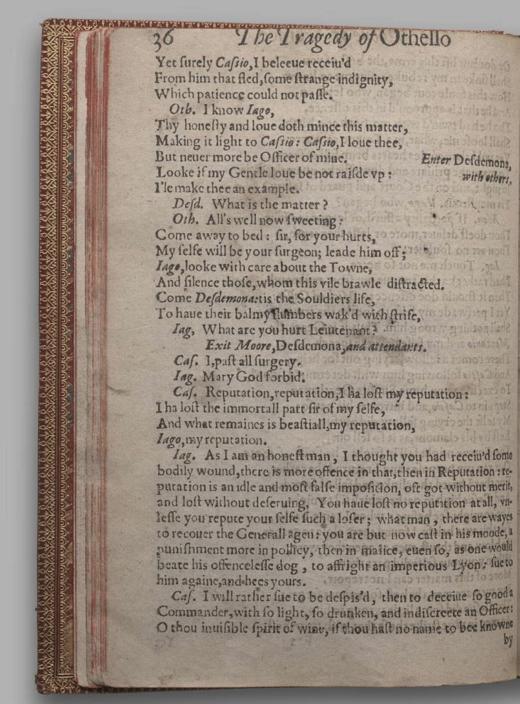 36 The Tragedy of Othello
Yet ſurely Caſsio, I beleeue receiu'd
From him that fled, ſome ſtrange indignity,
Which patience could not paſſe.
Oth. I know Iago,
Thy honeſty and loue doth mince this matter,
Making it light to Caſsio: Caſsio, I loue thee,
But neuer more be Officer of mine. Enter Deſdemona,
Looke if my Gentle loue be not raiſde vp: with others,
I'le make thee an example.
Deſd. What is the matter?
Oth. All's well now ſweeting:
Come away to bed: ſir, for your hurts,
My ſelfe will be your ſurgeon; leade him off;
Iago, looke with care about the Towne,
And ſilence thoſe, whom this vile brawle diſtracted.
Come Deſdemona: tis the Souldiers life,
To haue their balmy ſlumbers wak'd with ſtrife,
Iag. What are you hurt Leiutenant?
Exit Moore, Deſdemona, and attendants.
Caſ. I, paſt all ſurgery.
Iag. Mary God forbid.
Caſ. Reputation, reputation, I ha loſt my reputation:
I ha loſt the immortall part ſir of my ſelfe,
And what remaines is beaſtiall, my reputation,
Iago, my reputation.
Iag. As I am an honeſt man, I thought you had receiu'd ſome
bodily wound, there is more offence in that, then in Reputation: re-
putation is an idle and moſt falſe impoſition, oft got without merit,
and loſt without deſeruing, You haue loſt no reputation at all, vn-
leſſe you repute your ſelfe ſuch a loſer; what man, there are wayes
to recouer the Generall agen: you are but now caſt in his moode, a
punishment more in pollicy, then in malice, euen ſo, as one would
beate his offenceleſſe dog, to affright an imperious Lyon: ſue to
him againe, and hees yours.
Caſ. I will rather ſue to be deſpis'd, then to deceiue ſo good a
Commander, with ſo light, ſo drunken, and indiſcreete an Officer:
O thou inuiſible ſpirit of wine, if thou haſt no name to bee knowne
by